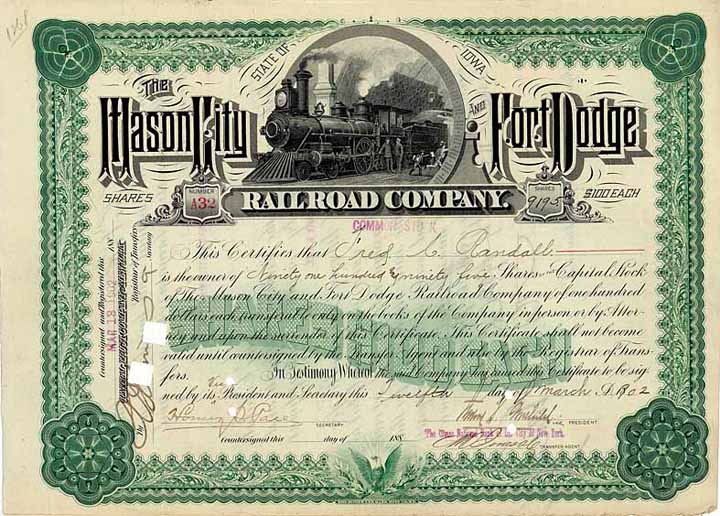 1281
STATE OF IOWA
THE Mason City AND Fort Dodge
SHARES $100 EACH
NUMBER
A32
SHARES
9195
RAILROAD COMPANY.
COMMON STOCK
This Certifies that Fred C. Randall
is the owner of Ninety one hundred & ninety five Shares in the Capital Stock
of The Mason City and Fort Dodge Railroad Company of one hundred
dollars each transferable only on the books of the Company in person or by Attor-
ney and upon the surrender of this Certificate. This Certificate shall not become
valid until countersigned by the Transfer Agent and also by the Registrar of Trans-
fers.
In Testimony Whereof the said Company has caused this Certificate to be sig-
ned by its Vice President and Secretary this Twelfth day of March A.D. 1902
SECRETARY
VICE PRESIDENT
Countersigned this day of 188
The Chase National Bank of the City of New York.
TRANSFER AGENTS
Countersigned and Registered this 188
MAR 18 1902
Registrar of Transfers